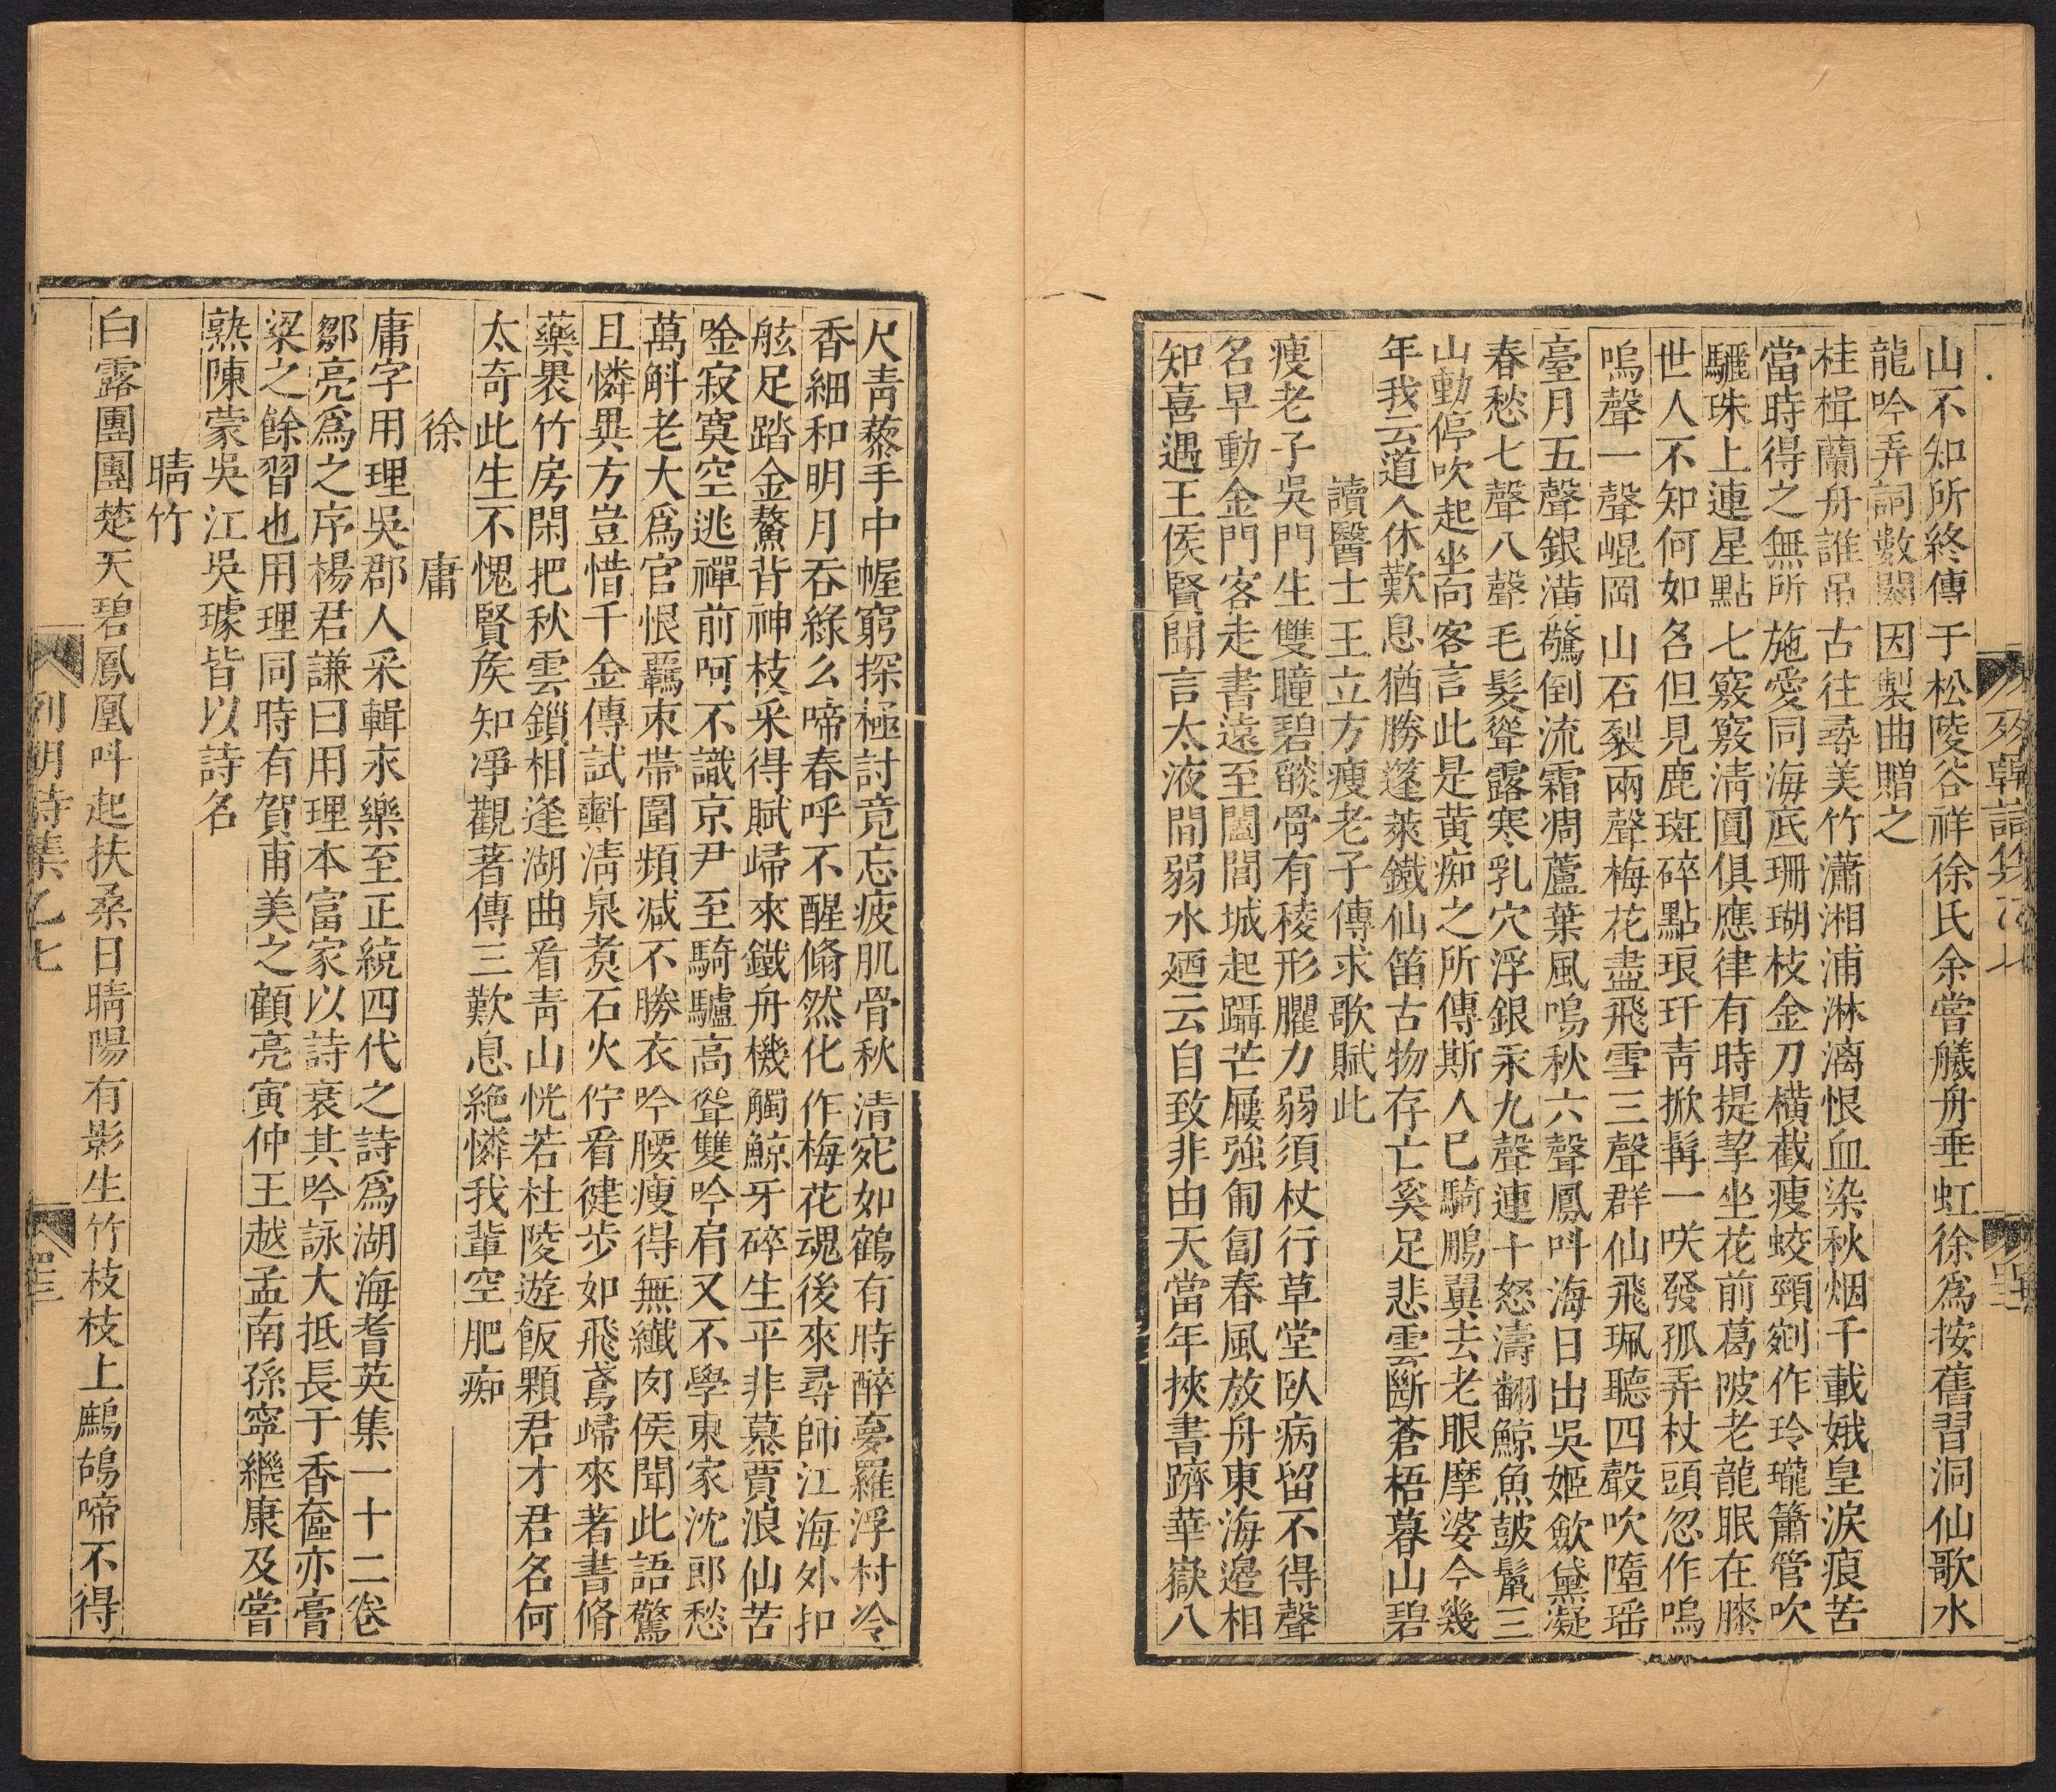 山不知所終傳于松陵谷祥徐氏余嘗艤舟垂虹徐爲按舊習洞仙歌水
龍吟弄詞數闋因製曲贈之
桂楫蘭舟誰吊古往尋美竹瀟湘浦淋漓恨血染秋烟千載娥皇淚痕苦
當時得之無所施愛同海底珊瑚枝金刀橫截瘦蛟頸剜作玲瓏簫管吹
驪珠上連星點七竅竅淸圓俱應律有時提挈坐花前葛陂老龍眠在膝
世人不知何如名但見鹿斑碎點琅玕靑掀髯一咲發孤弄杖頭忽作嗚
嗚聲一聲崐岡山石裂兩聲梅花盡飛雪三聲群仙飛珮聽四聲吹墮瑶
臺月五聲銀潢驚倒流霜凋蘆葉風鳴秋六聲鳳呌海日出吳姬歛黛凝
春愁七聲八聲毛髮聳露寒乳穴浮銀汞九聲連十怒濤翻鯨魚皷鬛三
山動停吹起坐向客言此是黄痴之所傳斯人已騎鵬翼去老眼摩婆今幾
年我云道人休歎息猶勝蓬萊鐵仙笛古物存亡奚足悲雲斷蒼梧暮山碧
讀醫士王立方瘦老子傳求歌賦此
瘦老子吳門生雙瞳碧燄骨有稜形臞力弱須杖行草堂臥病留不得聲
名早動金門客走書遠至闔閭城起躡芒屩強匍匐春風放舟東海邊相
知喜遇王侯賢聞言太液間弱水廼云自致非由天當年挾書躋華嶽八
尺靑藜手中幄窮探極討竟忘疲肌骨秋清宛如鶴有時醉夢羅浮村冷
香細和明月吞綠么啼春呼不醒翛然化作梅花魂後來尋師江海外扣
舷足踏金鰲背神枝采得賦歸來鐵舟機觸鯨牙碎生平非慕賈浪仙苦
唫寂寞空逃禪前呵不識京尹至騎驢高聳雙吟肩又不學東家沈郎愁
萬斛老大爲官恨覊束帶圍頻減不勝衣吟腰瘦得無纖肉侯聞此語驚
且憐異方豈惜千金傳試斟淸泉煑石火佇看徤步如飛鳶歸來著書脩
藥褁竹房閑把秋雲鎖相逢湖曲看靑山恍若杜陵遊飯顆君才君名何
太奇此生不愧賢矦知凈觀著傳三歎息絶憐我輩空肥痴
徐庸
庸字用理吳郡人采輯永樂至正統四代之詩爲湖海耆英集一十二卷
鄒亮爲之序楊君謙曰用理本富家以詩衰其吟詠大抵長于香奩亦膏
粱之餘習也用理同時有賀甫美之顧亮寅仲王越孟南孫寧繼康及嘗
熟陳蒙吳江吳璩皆以詩名
晴竹
白露團團楚天碧鳳凰呌起扶桑日晴陽有影生竹枝枝上鷓鴣啼不得
列朝詩集乙七